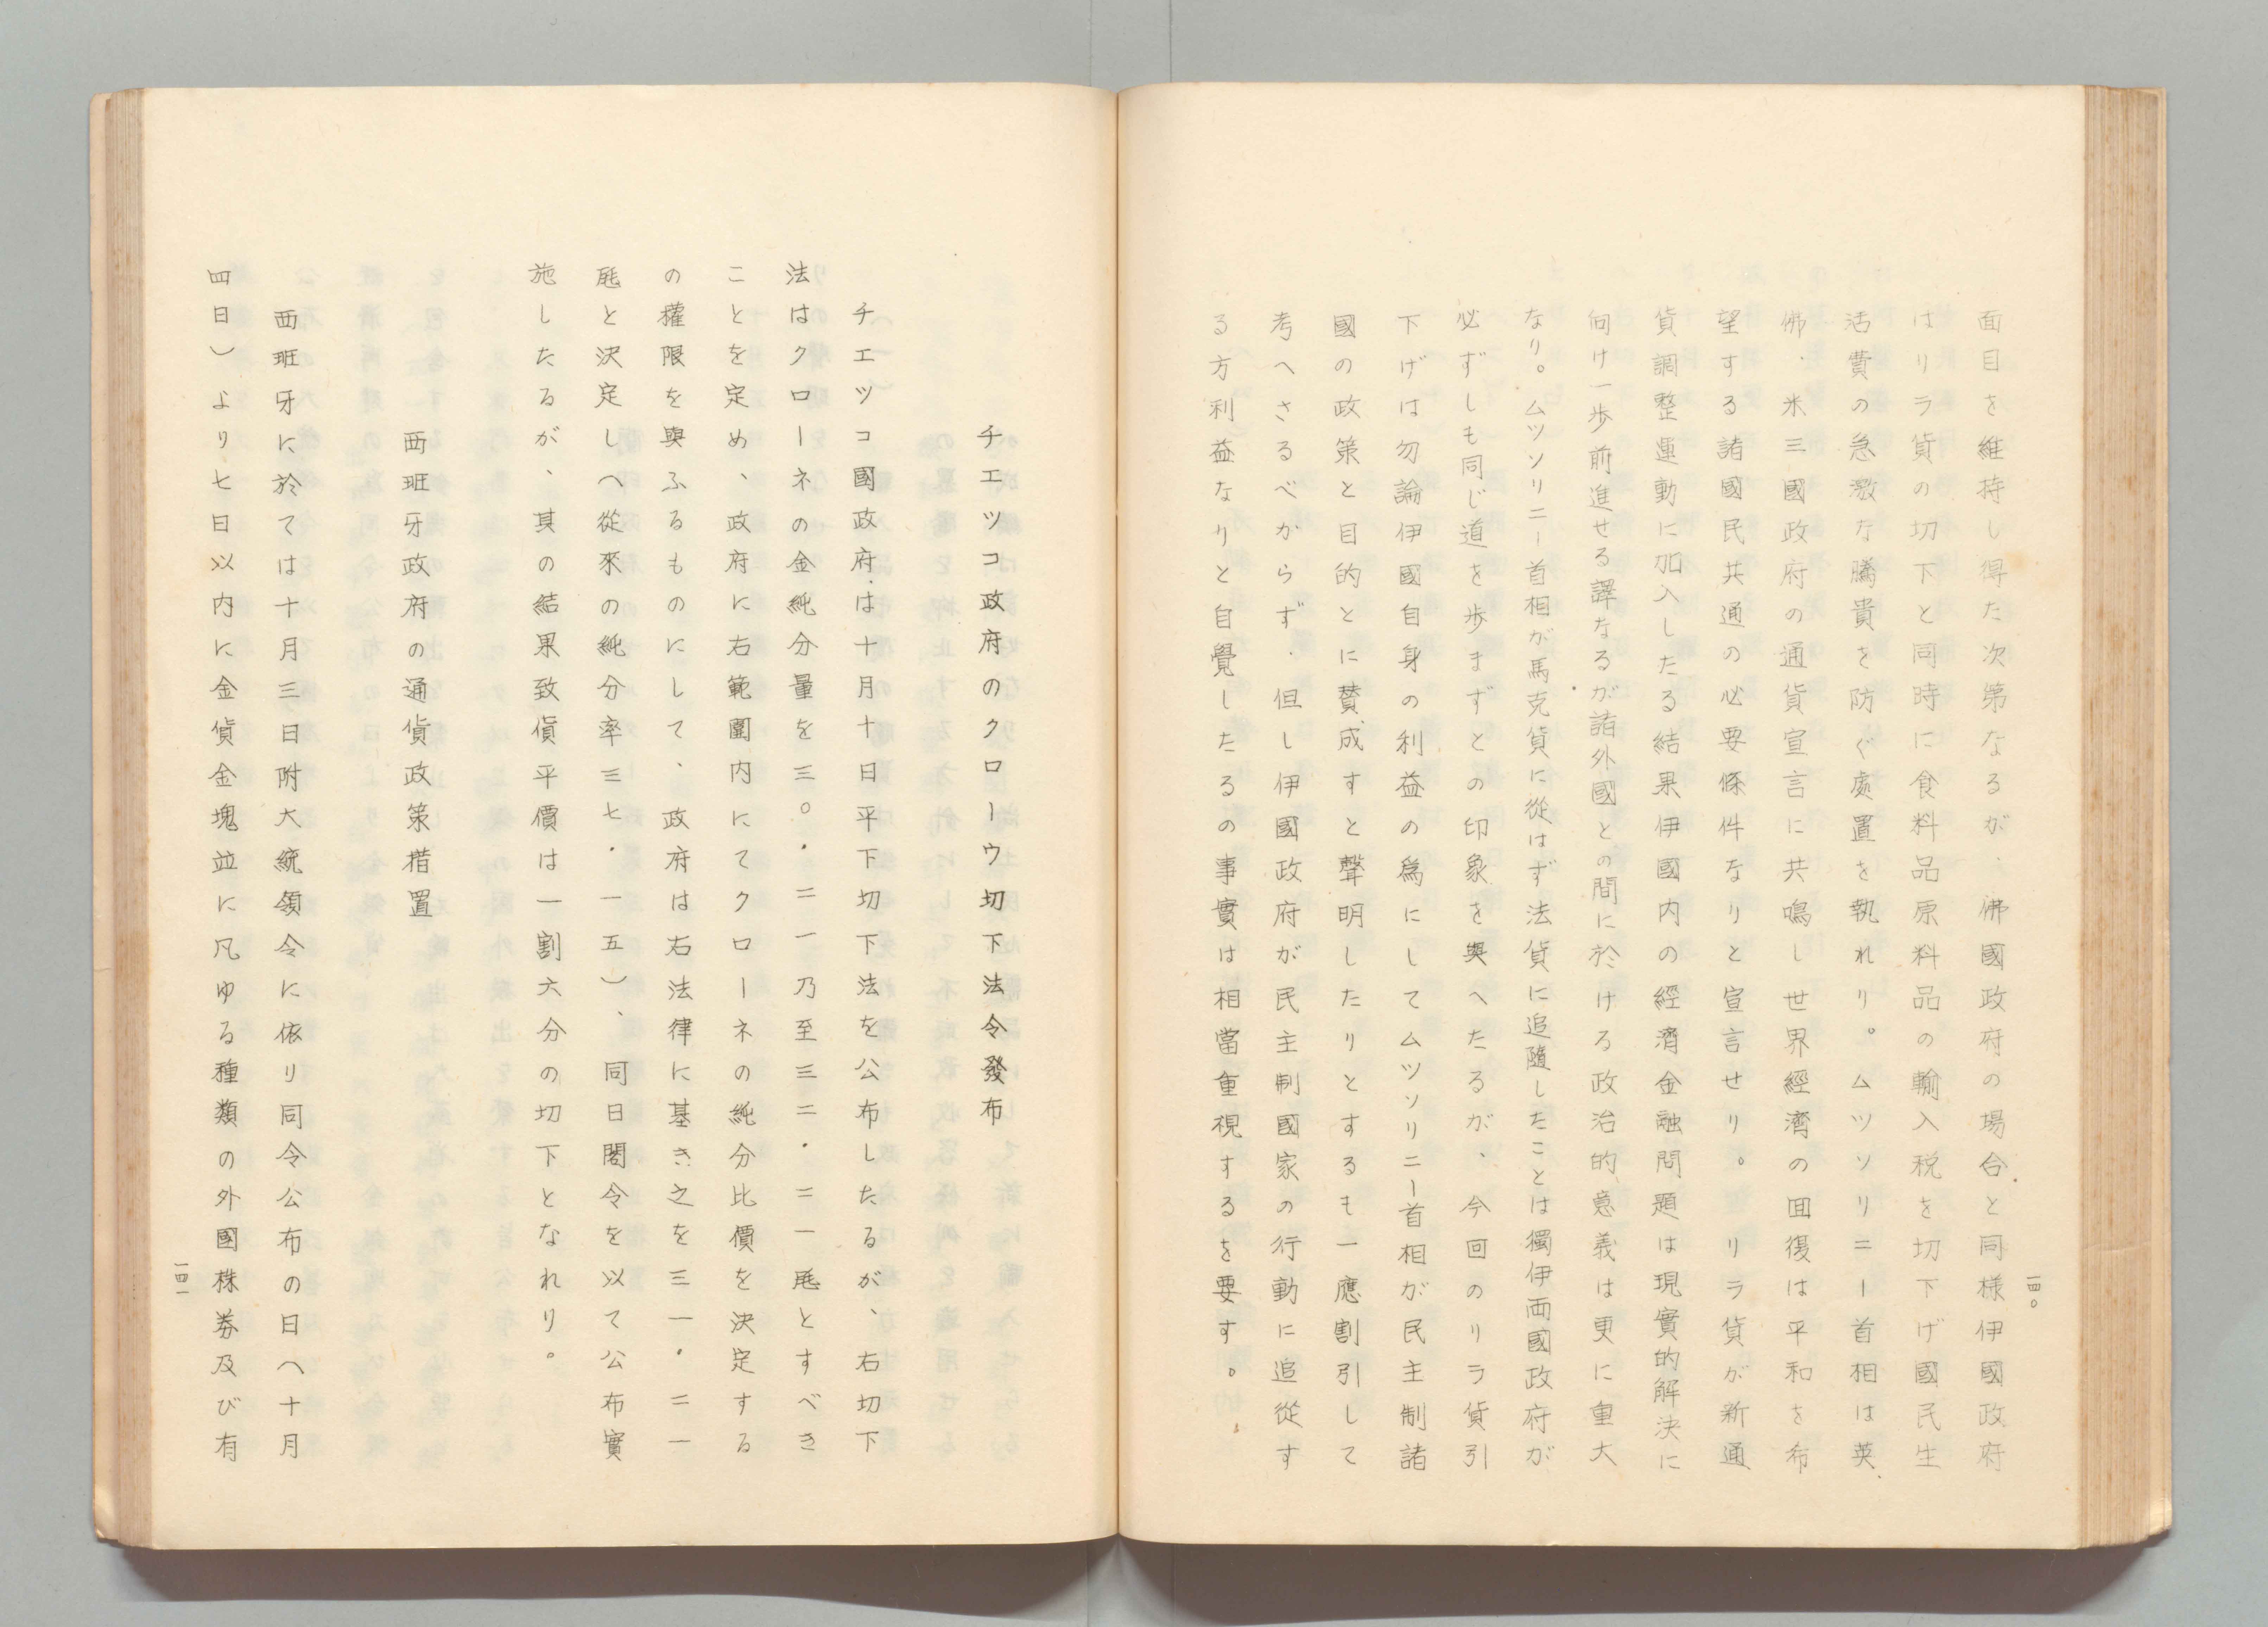 一四〇
面目を維持し得た次第なるが、佛國政府の場合と同様伊國政府
はリラ貨の切下と同時に食料品原料品の輸入税を切下げ國民生
活費の急激な騰貴を防ぐ處置を執れり。ムツソリニー首相は英、
佛、米三國政府の通貨宣言に共鳴し世界經濟の囬復は平和を布
望する諸國民共通の必要條件なりと宣言せり。リラ貨が新通
貨調整運動に加入したる結果伊國内の經濟金融問題は現實的解決に
向け一歩前進せる譯なるが諸外國との間に於ける政治的意義は更に重大
なり。ムツソリニー首相が馬克貨に從はず法貨に追隨したことは獨伊両國政府が
必ずしも同じ道を歩まずとの印象を與へたるが、今回のリラ貨引
下げは勿論伊國自身の利益の爲にしてムツソリニー首相が民主制諸
國の政策と目的とに賛成すと聲明したりとするも一應割引して
考へさるべからず、但し伊國政府が民主制國家の行動に追従す
る方利益なりと自覺したるの事實は相當重視するを要す。
チエツコ政府のクローウ切下法令發布
チエツコ國政府は十月十日平下切下法を公布したるが、右切下
法はクローネの金純分量を三〇・二一乃至三二・二一瓱とすべき
ことを定め、政府に右範圍内にてクローネの純分比價を決定する
の權限を與ふるものにして、政府は右法律に基き之を三一・二一
瓱と決定し（從來の純分率三七・一五）、同日閣令を以て公布實
施したるが、其の結果致貨平價は一割六分の切下となれり。
西班牙政府の通貨政策措置
西班牙に於ては十月三日附大統領令に依り同令公布の日（十月
四日）より七日以内に金貨金塊並に凡ゆる種類の外國株券及び有
一四一